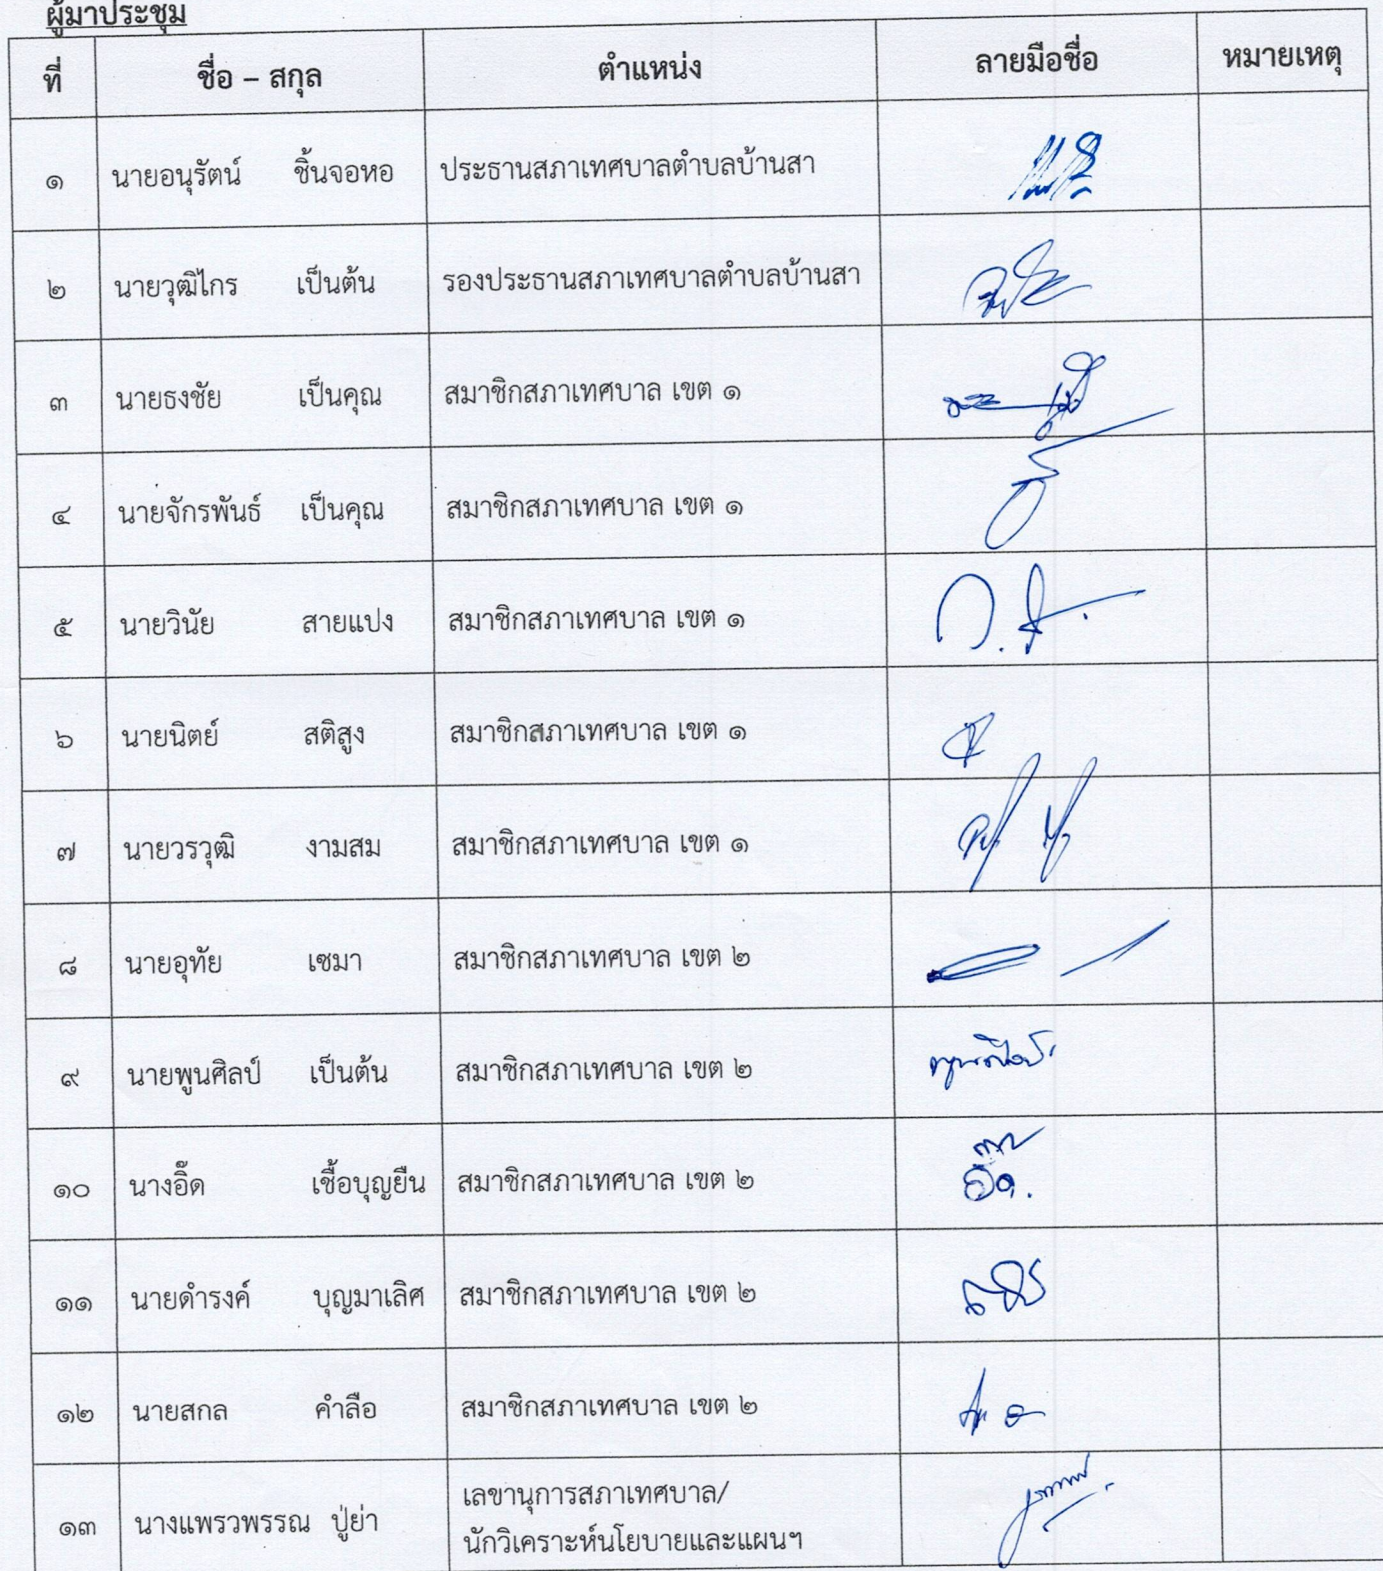 ผู้มาประชุม
ที่ ชื่อ – สกุล ตำแหน่ง ลายมือชื่อ หมายเหตุ
๑ นายอนุรัตน์ ชิ้นจอหอ ประธานสภาเทศบาลตำบลบ้านสา
๒ นายวุฒิไกร เป็นต้น รองประธานสภาเทศบาลตำบลบ้านสา
๓ นายธงชัย เป็นคุณ สมาชิกสภาเทศบาล เขต ๑
๔ นายจักรพันธ์ เป็นคุณ สมาชิกสภาเทศบาล เขต ๑
๕ นายวินัย สายแปง สมาชิกสภาเทศบาล เขต ๑
๖ นายนิตย์ สติสูง สมาชิกสภาเทศบาล เขต ๑
๗ นายวรวุฒิ งามสม สมาชิกสภาเทศบาล เขต ๑
๘ นายอุทัย เซมา สมาชิกสภาเทศบาล เขต ๒
๙ นายพูนศิลป์ เป็นต้น สมาชิกสภาเทศบาล เขต ๒
๑๐ นางอิ๊ด เชื้อบุญยืน สมาชิกสภาเทศบาล เขต ๒
๑๑ นายดำรงค์ บุญมาเลิศ สมาชิกสภาเทศบาล เขต ๒
๑๒ นายสกล คำลือ สมาชิกสภาเทศบาล เขต ๒
๑๓ นางแพรวพรรณ ปู่ย่า เลขานุการสภาเทศบาล/
นักวิเคราะห์นโยบายและแผนฯ